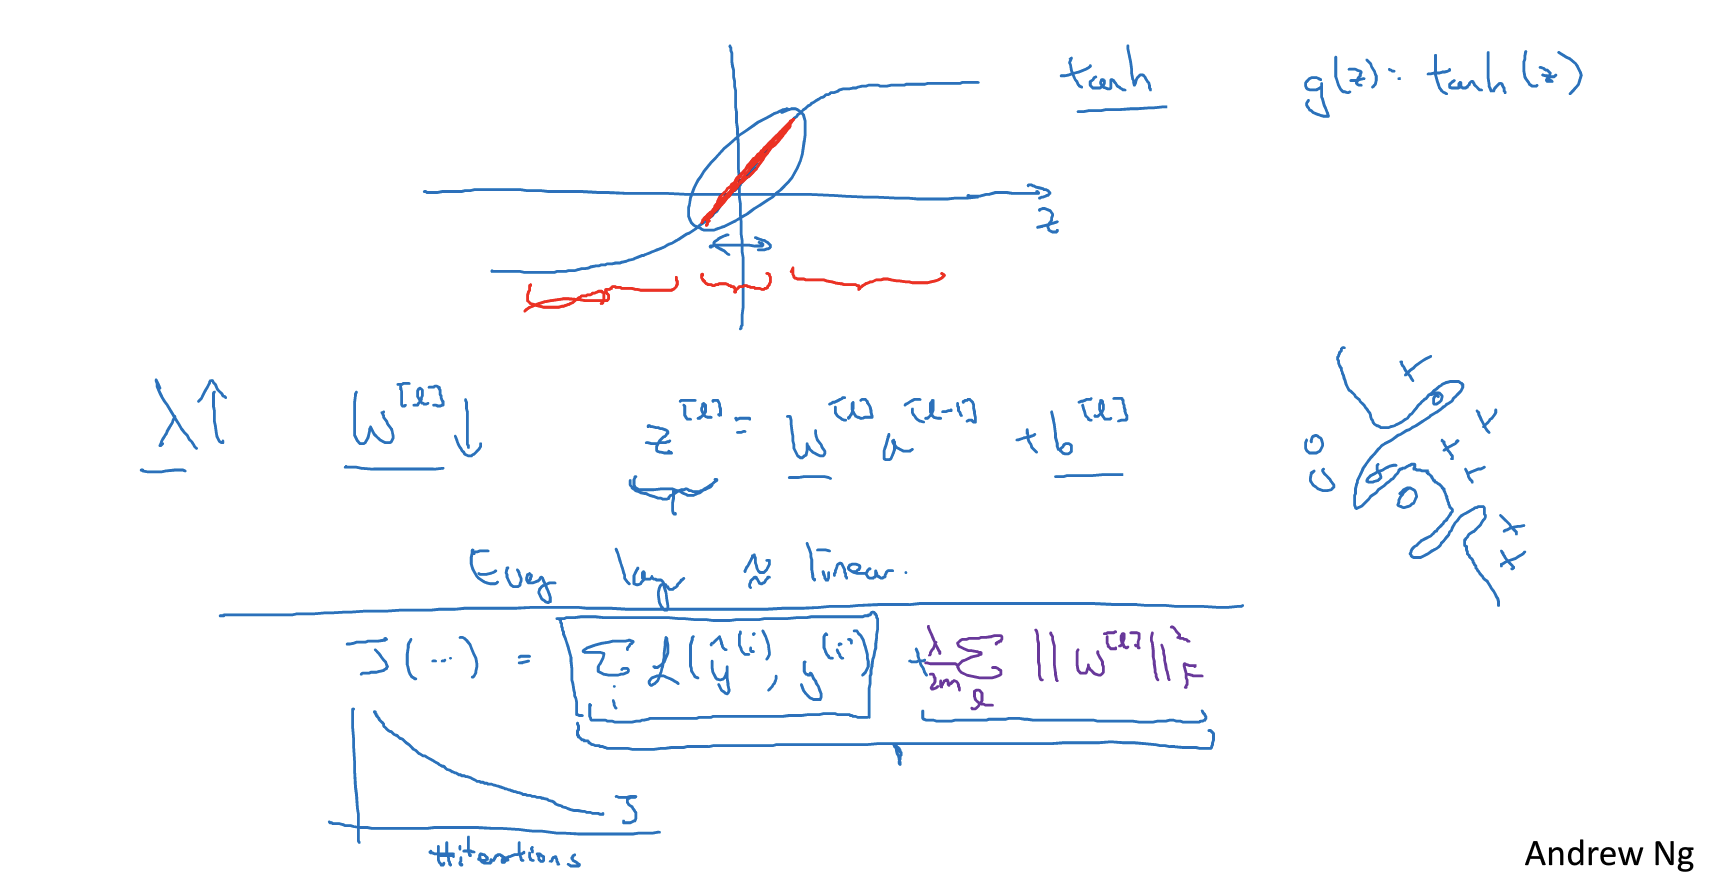 tanh g(z): tanh(z)
z
λ↑ W^[l]↓ z^[l] = W^[l] a^[l-1] + b^[l]
Every layer ≈ linear.
J(...) = Σ_i L(ŷ^(i), y^(i)) + λ/2m Σ_l ||W^[l]||²_F
J
#iterations
Andrew Ng